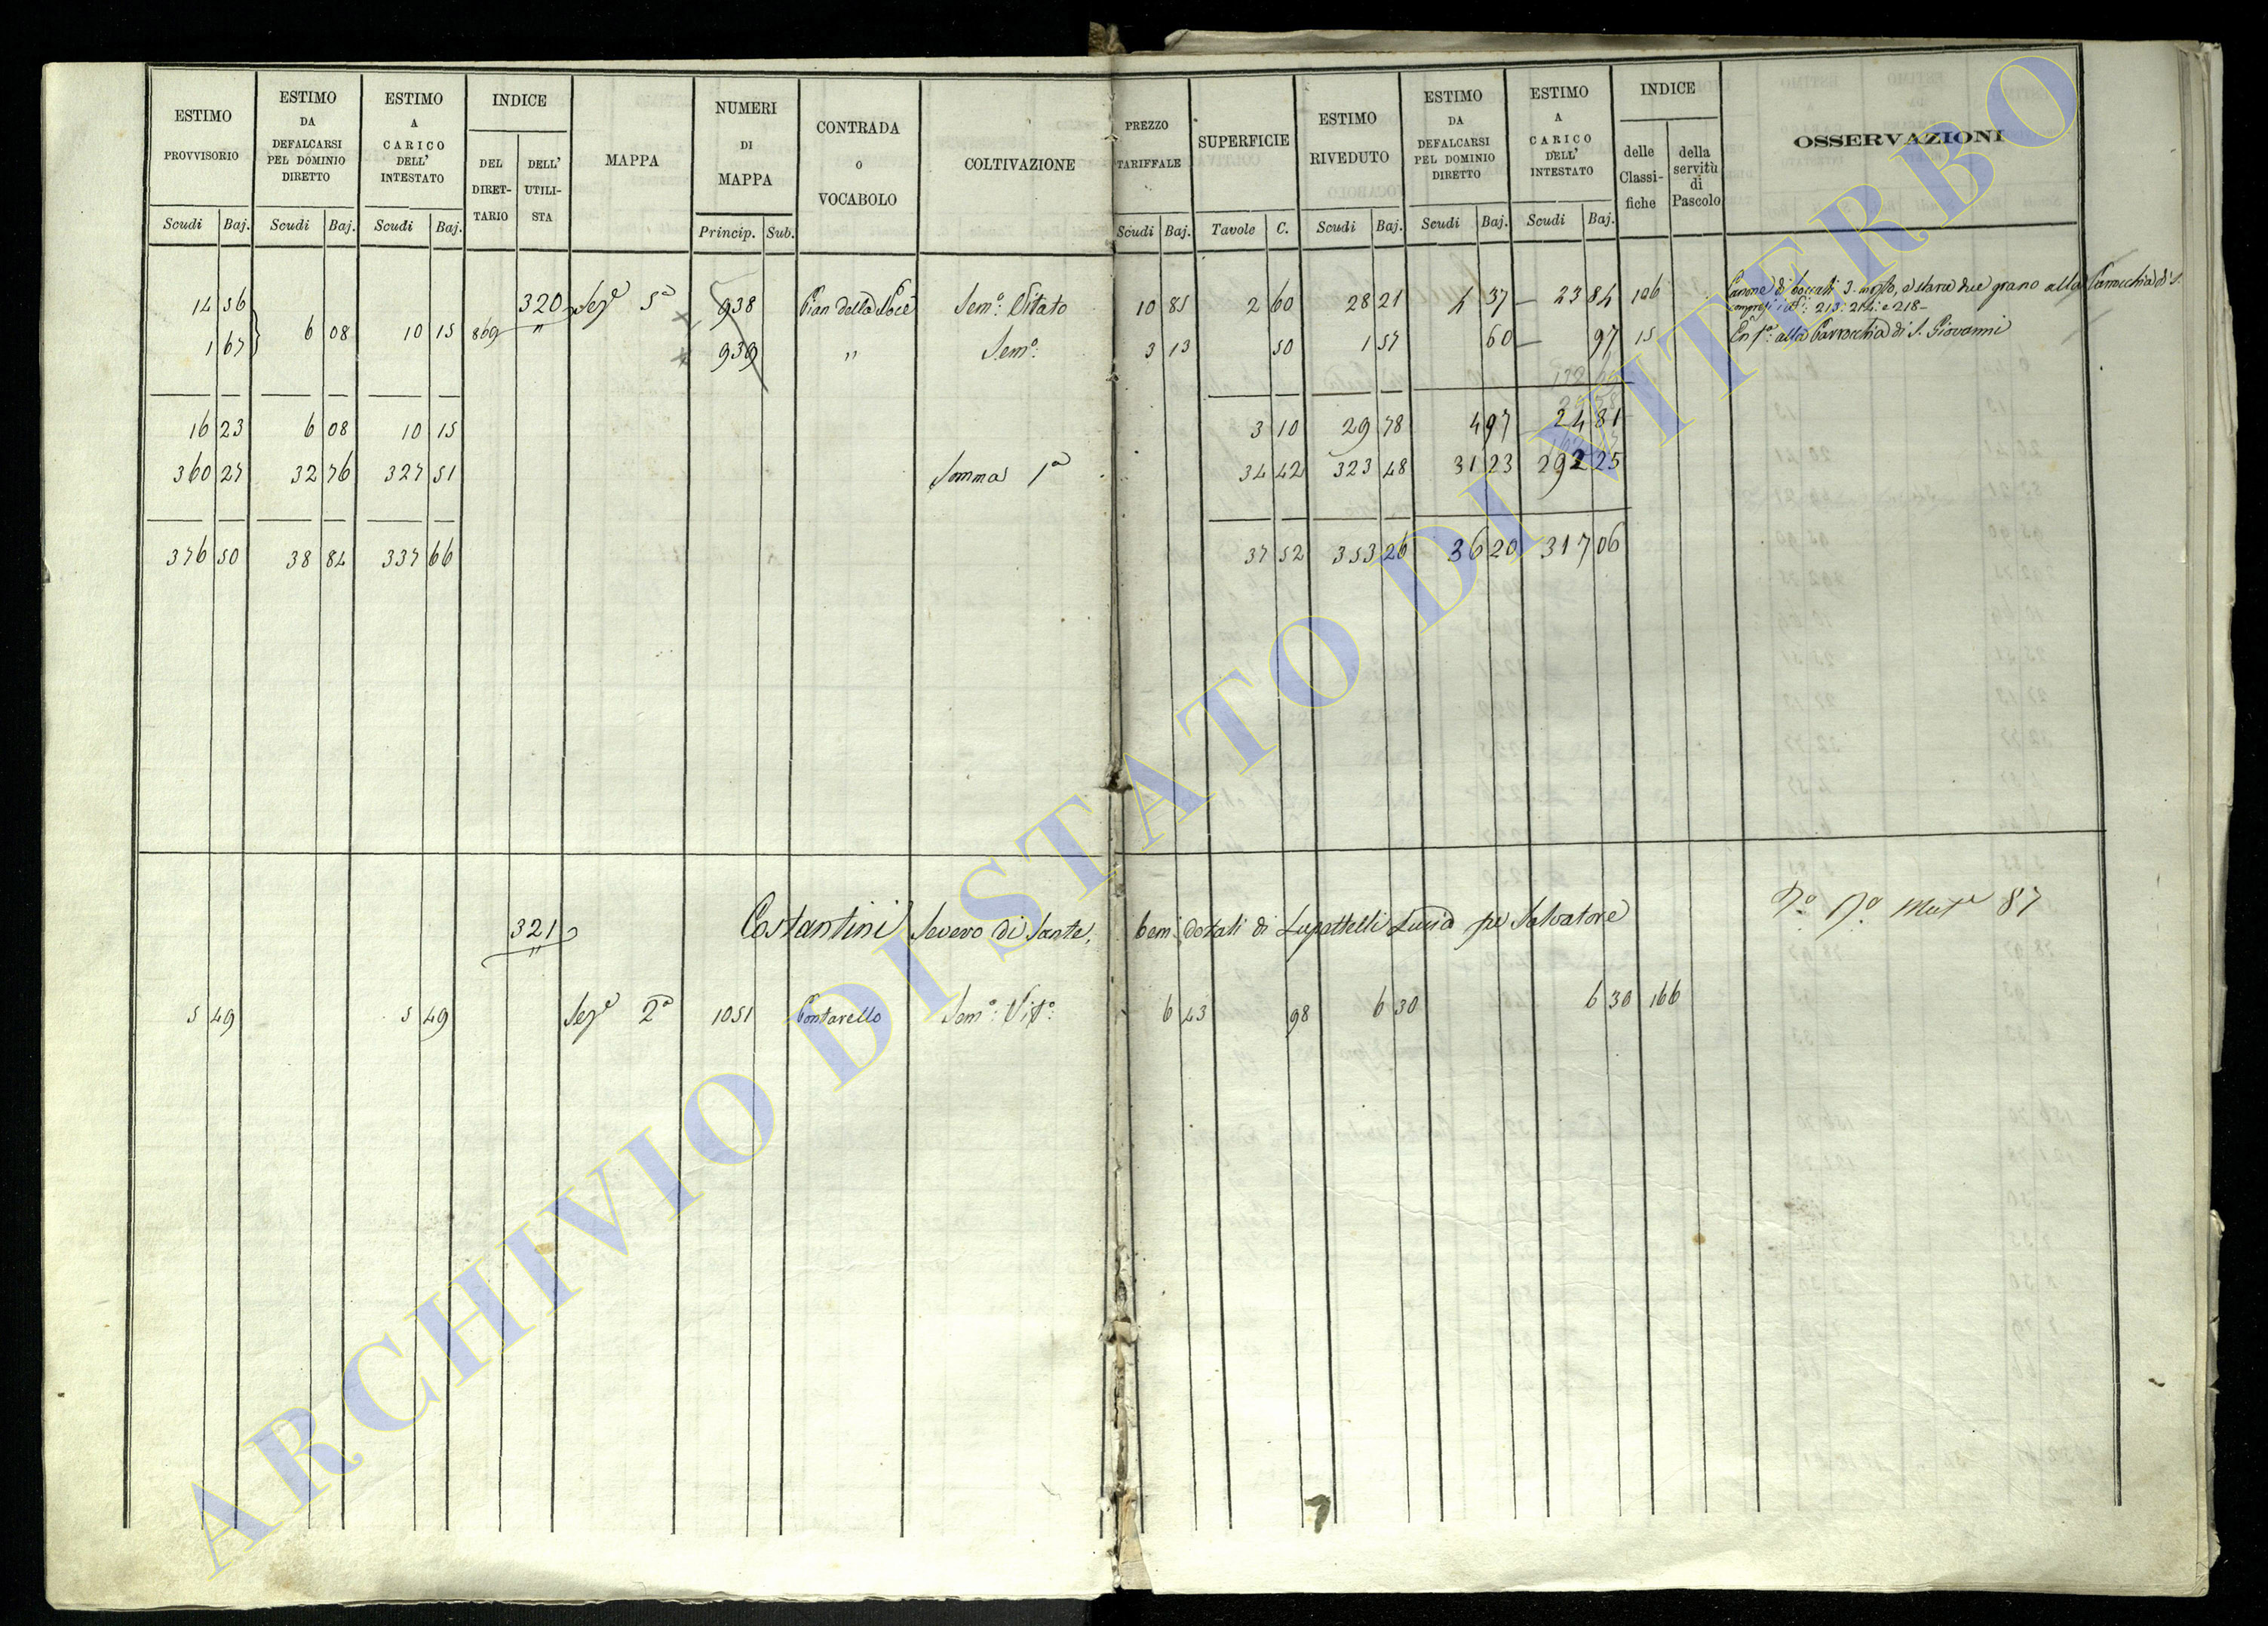 ESTIMO PROVVISORIO | ESTIMO DA DEFALCARSI PEL DOMINIO DIRETTO | ESTIMO A CARICO DELL' INTESTATO | INDICE | MAPPA | NUMERI DI MAPPA | CONTRADA o VOCABOLO | COLTIVAZIONE | PREZZO TARIFFALE | SUPERFICIE | ESTIMO RIVEDUTO | ESTIMO DA DEFALCARSI PEL DOMINIO DIRETTO | ESTIMO A CARICO DELL' INTESTATO | INDICE | OSSERVAZIONI
DEL DIRET-TARIO | DELL' UTILI-STA | delle Classi-fiche | della servitù di Pascolo
Scudi | Baj. | Scudi | Baj. | Scudi | Baj. | Princip. | Sub. | Scudi | Baj. | Tavole | C. | Scudi | Baj. | Scudi | Baj. | Scudi | Baj.
14 56 | 320 | Sez.e 5a | 938 | Pian della Noce | Sem.o Vitato | 10 85 | 2 60 | 28 21 | 4 37 | 23 84 | 106 | Canone di boccali 3. mosto, e stara due grano alla Parrocchia di S.
compresi i N.i 213. 214. e 218
1 67 | 6 08 | 10 15 | 869 | " | 939 | " | Sem.o | 3 13 | 50 | 1 57 | 60 | 97 | 15 | Enf.a alla Parrocchia di S. Giovanni
16 23 | 6 08 | 10 15 | 3 10 | 29 78 | 4 97 | 24 81
360 27 | 32 76 | 327 51 | Somma 1a | 34 42 | 323 48 | 31 23 | 292 25
376 50 | 38 84 | 337 66 | 37 52 | 353 26 | 36 20 | 317 06
321 | Costantini Severo di Sante, beni dotali di Lupattelli Lucia di Salvatore | Mut.e 87
"
5 49 | 5 49 | Sez.e 2a | 1051 | Pontarello | Sem.o Vit.o | 6 43 | 98 | 6 30 | 6 30 | 166
ARCHIVIO DI STATO DI VITERBO